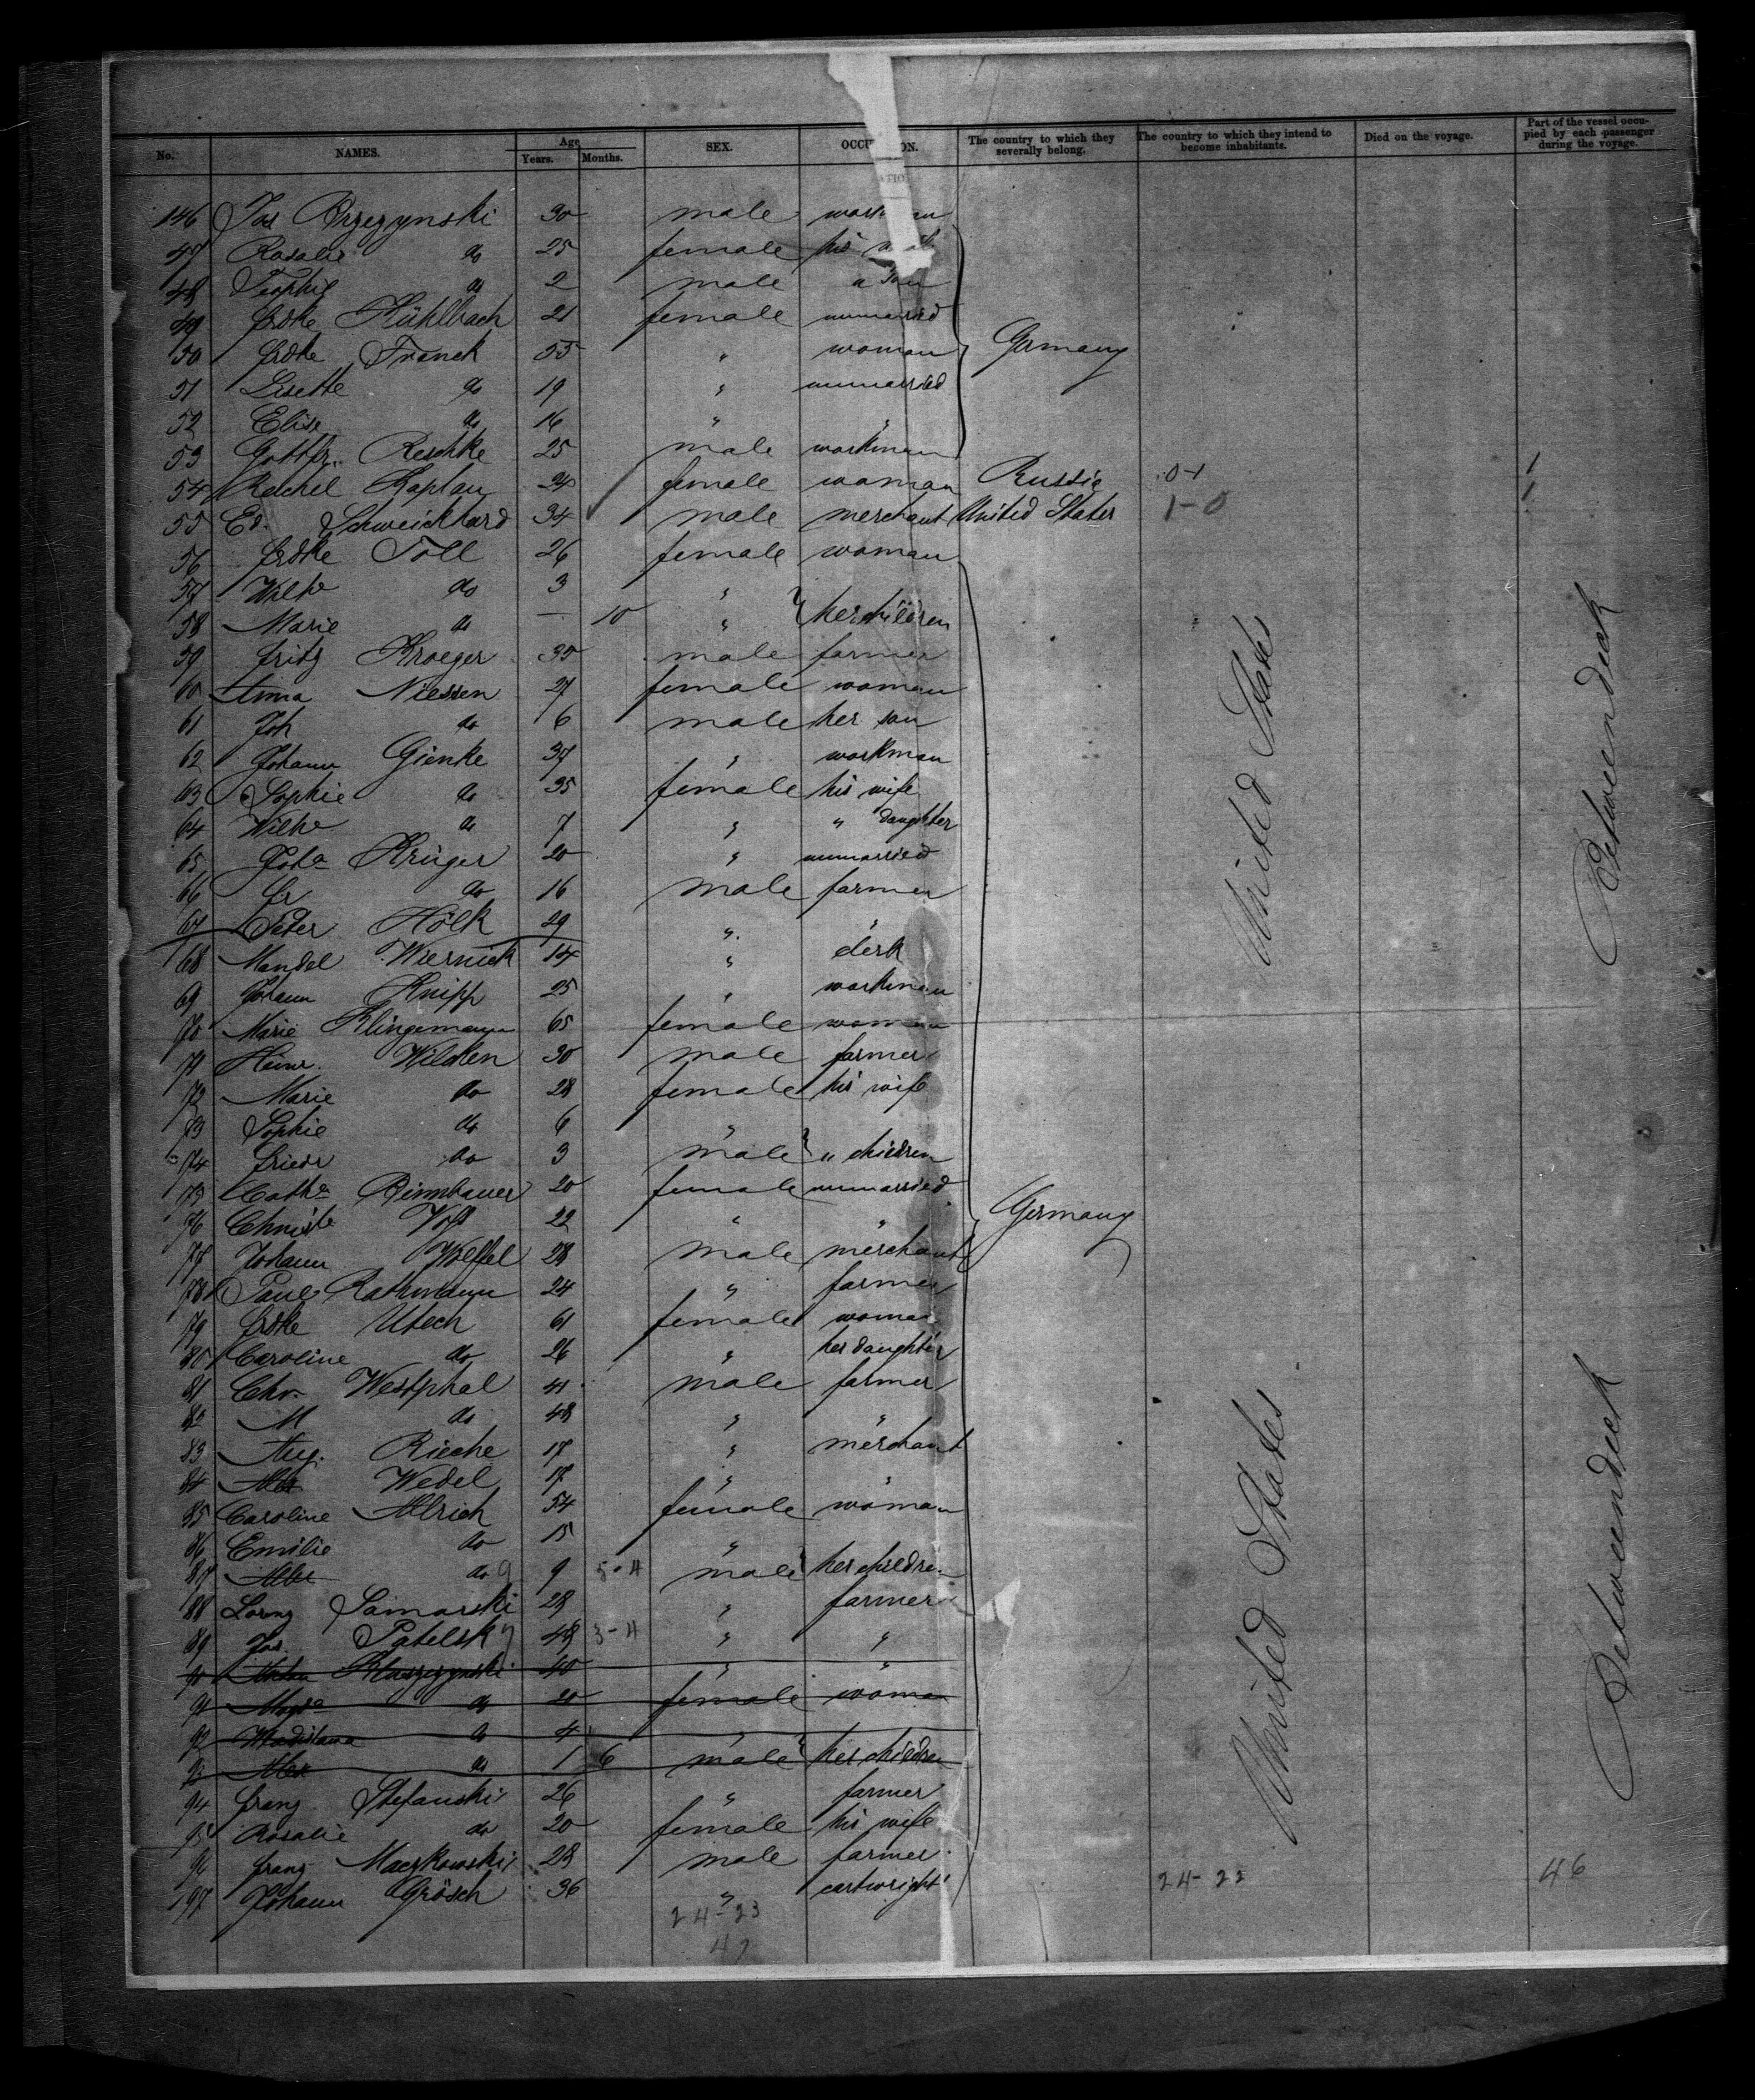 No. NAMES. Age Years. Months. SEX. OCCU ON. The country to which they severally belong. The country to which they intend to become inhabitants. Died on the voyage. Part of the vessel occupied by each passenger during the voyage.
146 Jos Brzezynski 30 male workman
47 Rosalie do 25 female his
48 Teophil do 2 male a son
49 Frdke Kühlbach 21 female unmarried
50 Frdke Franck 55 " woman Germany
51 Lisette do 19 " unmarried
52 Elise do 16 " "
53 Gottfr. Reschke 25 male workman
54 Rachel Kaplan 24 female woman Russia 0-1 1
55 Ed. Schweickhard 34 male merchant United States 1-0 1
56 Frdke Toll 26 female woman
57 Wilhe do 3 "
58 Marie do — 10 " her children
59 Fritz Kroeger 35 male farmer
60 Anna Niessen 27 female woman
61 Joh do 6 male her son
62 Johann Gienke 37 " workman
63 Sophie do 35 female his wife
64 Wilhe do 7 " " daughter
65 Joha Krüger 20 " unmarried
66 Fr do 16 male farmer
67 Peter Hölk 29 " "
68 Mandel Wiernick 14 " clerk
69 Johann Knipp 25 " workman
70 Marie Klingemann 65 female woman
71 Heinr. Wilcken 30 male farmer
72 Marie do 28 female his wife
73 Sophie do 6 "
74 Friedr do 3 male " children
75 Cathe Birnbauer 20 female unmarried
76 Christe Voss 22 " " Germany
77 Johann Wölffel 28 male merchant
78 Paul Rathmann 24 " farmer
79 Frdke Utech 61 female woman
80 Caroline do 26 " her daughter
81 Chr. Westphal 41 male farmer
82 M do 48 " "
83 Aug. Rieche 17 " merchant
84 Wedel 17 " "
85 Caroline Alrich 54 female woman
86 Emilie do 15 "
87 do 9 9 5-11 male her children
88 Lorenz Samarski 28 " farmer
89 Jos. Patelsky 48 3-11 " "
90 40 " "
91 do 20 female woman
92 do 4 "
93 do 1 6 male her children
94 Franz Stefanski 26 " farmer
95 Rosalie do 20 female his wife
96 Franz Maczkowski 28 male farmer
197 Johann Grösch 36 " cartwright
24-23
47
24-22
46
United States
United States
Betweendeck
Betweendeck